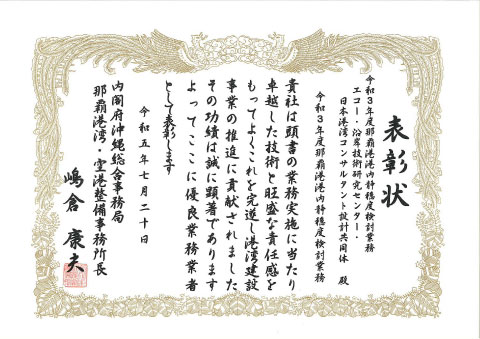 表彰状
令和3年度那覇港港内静穏度検討業務
エコー・沿岸技術研究センター・
日本港湾コンサルタント設計共同体 殿
令和3年度那覇港港内静穏度検討業務
貴社は頭書の業務実施に当たり
卓越した技術と旺盛な責任感を
もってよくこれを完遂し港湾建設
事業の推進に貢献されました
その功績は誠に顕著であります
よってここに優良業務業者
として表彰します
令和五年七月二十日
内閣府沖縄総合事務局
那覇港湾・空港整備事務所長
嶋倉康夫